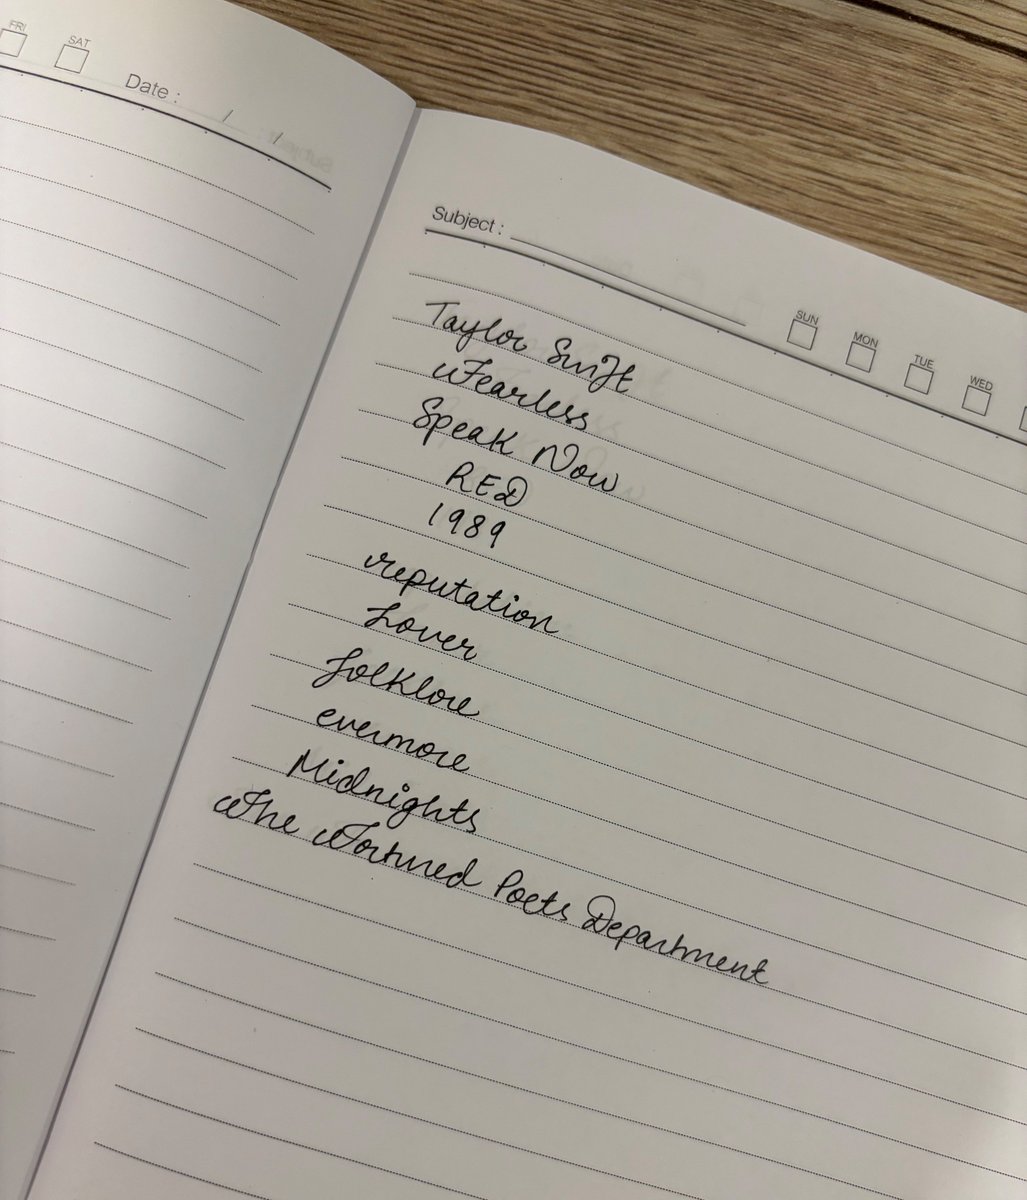 FRI
SAT
Date : / /
Subject :
SUN
MON
TUE
WED
Taylor Swift
Fearless
Speak Now
RED
1989
reputation
Lover
folklore
evermore
Midnights
The Tortured Poets Department